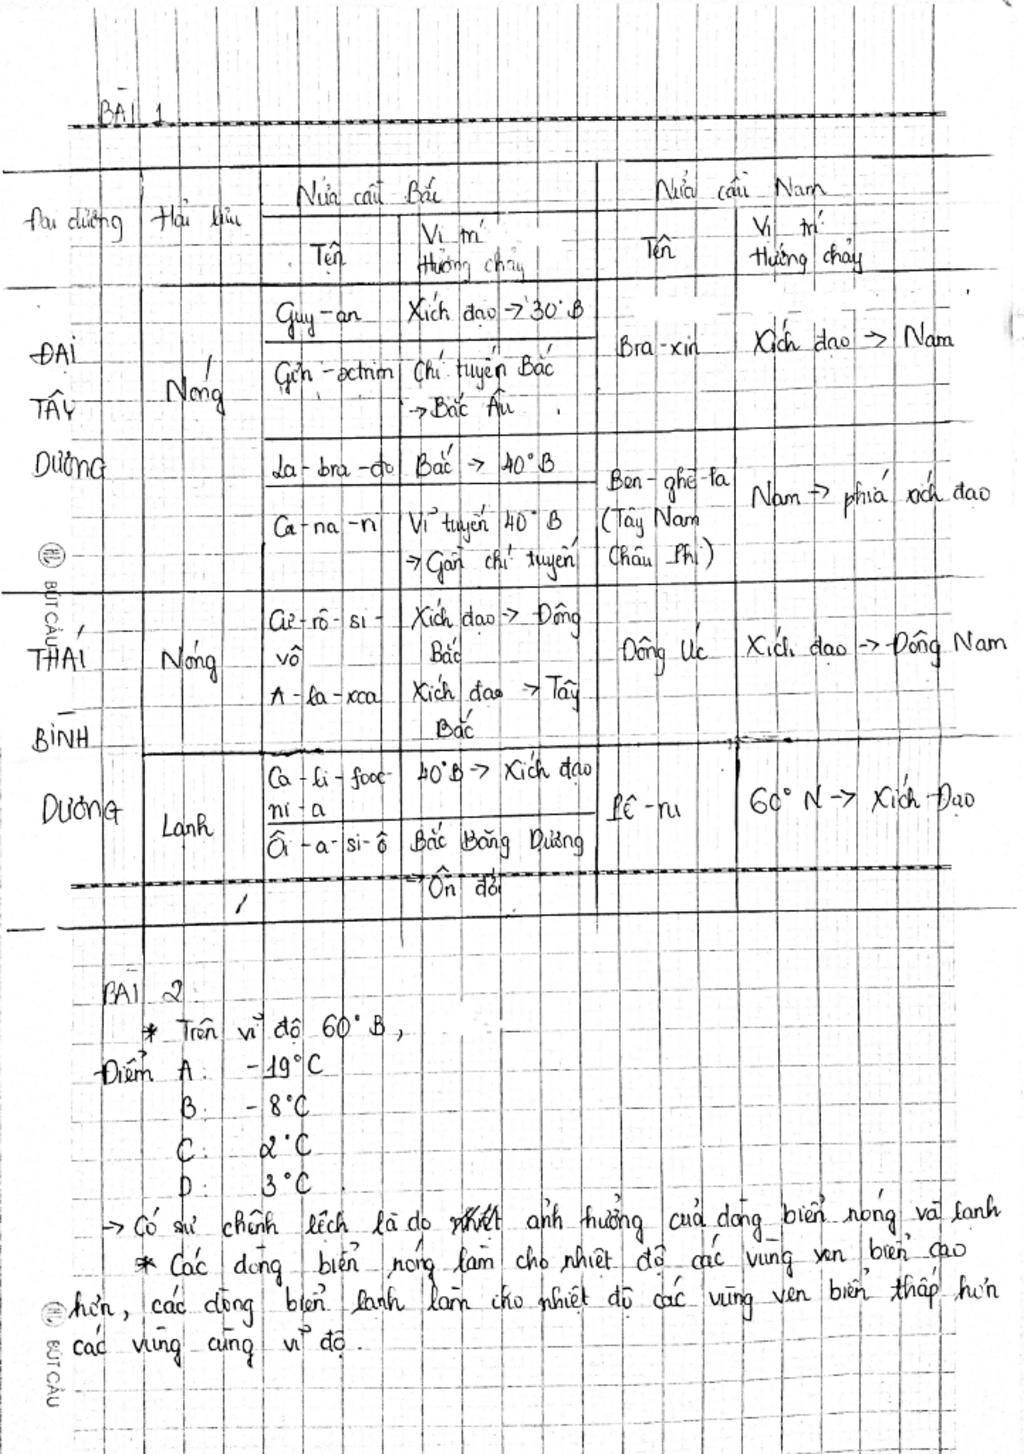 BÀI 1
Nửa cầu Bắc Nửa cầu Nam
Đại dương Hải lưu Tên Vị trí Hướng chảy Tên Vị trí Hướng chảy
ĐẠI TÂY DƯƠNG
Nóng
Guy-an Xích đạo → 30° B
Gơn-xtrim Chí tuyến Bắc
→ Bắc Âu
Bra-xin Xích đạo → Nam
La-bra-đo Bắc → 40° B
Ca-na-ri Vĩ tuyến 40° B
→ Gần chí tuyến
Ben-ghê-la
(Tây Nam
Châu Phi)
Nam → phía xích đạo
THÁI BÌNH DƯƠNG
Nóng
Cư-rô-si-
vô
Xích đạo → Đông
Bắc
A-la-xca Xích đạo → Tây
Bắc
Đông Úc Xích đạo → Đông Nam
Lạnh
Ca-li-fooc-
ni-a
40°B → Xích đạo
Ôi-a-si-ô Bắc Băng Dương
→ Ôn đới
Pê-ru 60° N → Xích Đạo
BÀI 2
* Trên vĩ độ 60° B,
Điểm A: -19°C
B: -8°C
C: 2°C
D: 3°C
→ Có sự chênh lệch là do ảnh hưởng của dòng biển nóng và lạnh
* Các dòng biển nóng làm cho nhiệt độ các vùng ven biển cao
hơn, các dòng biển lạnh làm cho nhiệt độ các vùng ven biển thấp hơn
các vùng cùng vĩ độ.
BÚT CÀU
BÚT CÀU